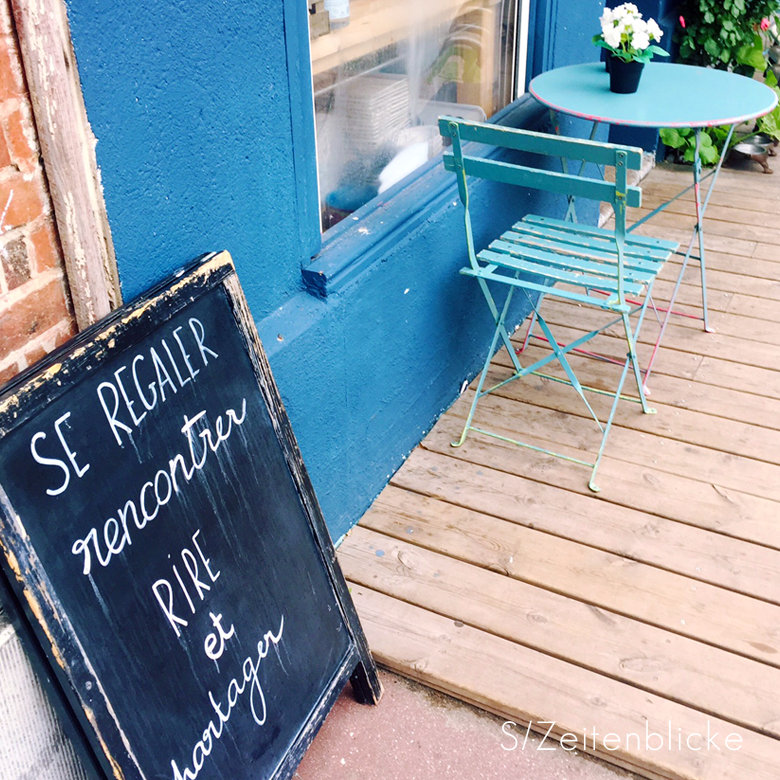 SE REGALER
rencontrer
RIRE
et
partager
S/Zeitenblicke